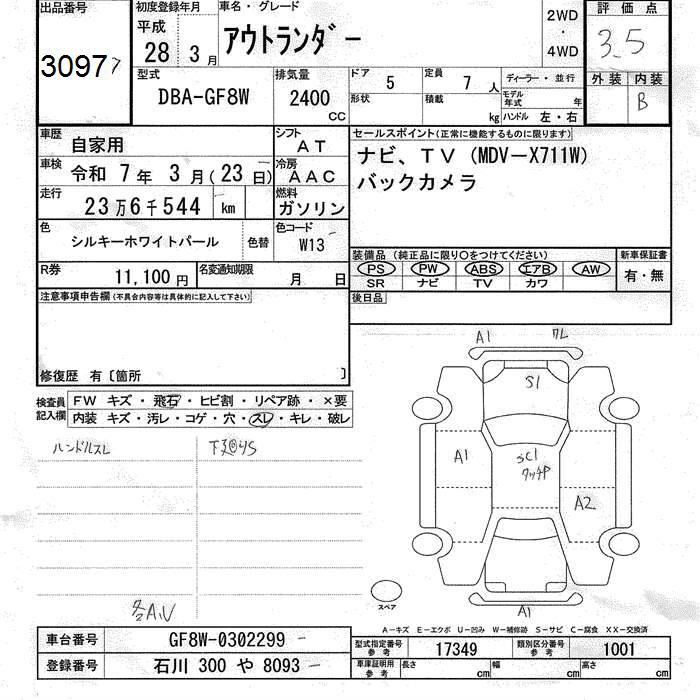 出品番号
3097
初度登録年月
平成
28 3 月
車名・グレード
アウトランダー
2WD
・
4WD
評価点
3.5
外装 内装
B
型式
DBA-GF8W
排気量
2400
CC
ドア 5
定員 7 人
形状
積載 kg
ディーラー・並行
モデル年式 年
ハンドル 左・右
車歴 自家用
シフト AT
車検 令和 7 年 3 月 ( 23 日)
冷房 AAC
走行 23 万 6 千 544 km
燃料 ガソリン
色 シルキーホワイトパール 色替
色コード W13
R券 11,100 円
名変通知期限 月 日
セールスポイント(正常に機能するものに限ります)
ナビ、TV (MDV-X711W)
バックカメラ
装備品 (純正品に限り○をつけてください)
PS PW ABS エアB AW
SR ナビ TV カワ
新車保証書
有・無
後日品
注意事項申告欄(不具合内容等は具体的に記入して下さい)
修復歴 有〔箇所 〕
検査員記入欄
FW キズ・飛石・ヒビ割・リペア跡・×要
内装 キズ・汚レ・コゲ・穴・スレ・キレ・破レ
ハンドルスレ
各A,U
A1
S1
A1
SC1
タッチP
A2
A1
スペア
A-キズ E-エクボ U-凹み W-補修跡 S-サビ C-腐食 XX-交換済
車台番号 GF8W-0302299
登録番号 石川 300 や 8093
型式指定番号 参考 17349
類別区分番号 参考 1001
車庫証明用 参考 長さ cm 幅 cm 高さ cm